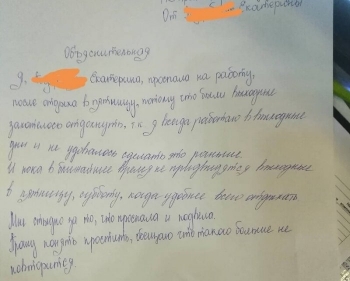 От Екатерины
Объяснительная
Я, Екатерина, проспала на работу,
после отдыха в пятницу, потому что были выходные
захотелось отдохнуть, т.к. я всегда работаю в выходные
дни и не удавалось сделать это раньше.
И пока в ближайшее время не предвидится выходные
в пятницу, субботу, когда удобнее всего отдыхать
Мне стыдно за то, что проспала и подвела.
Прошу понять простить, обещаю что такого больше не
повторится.